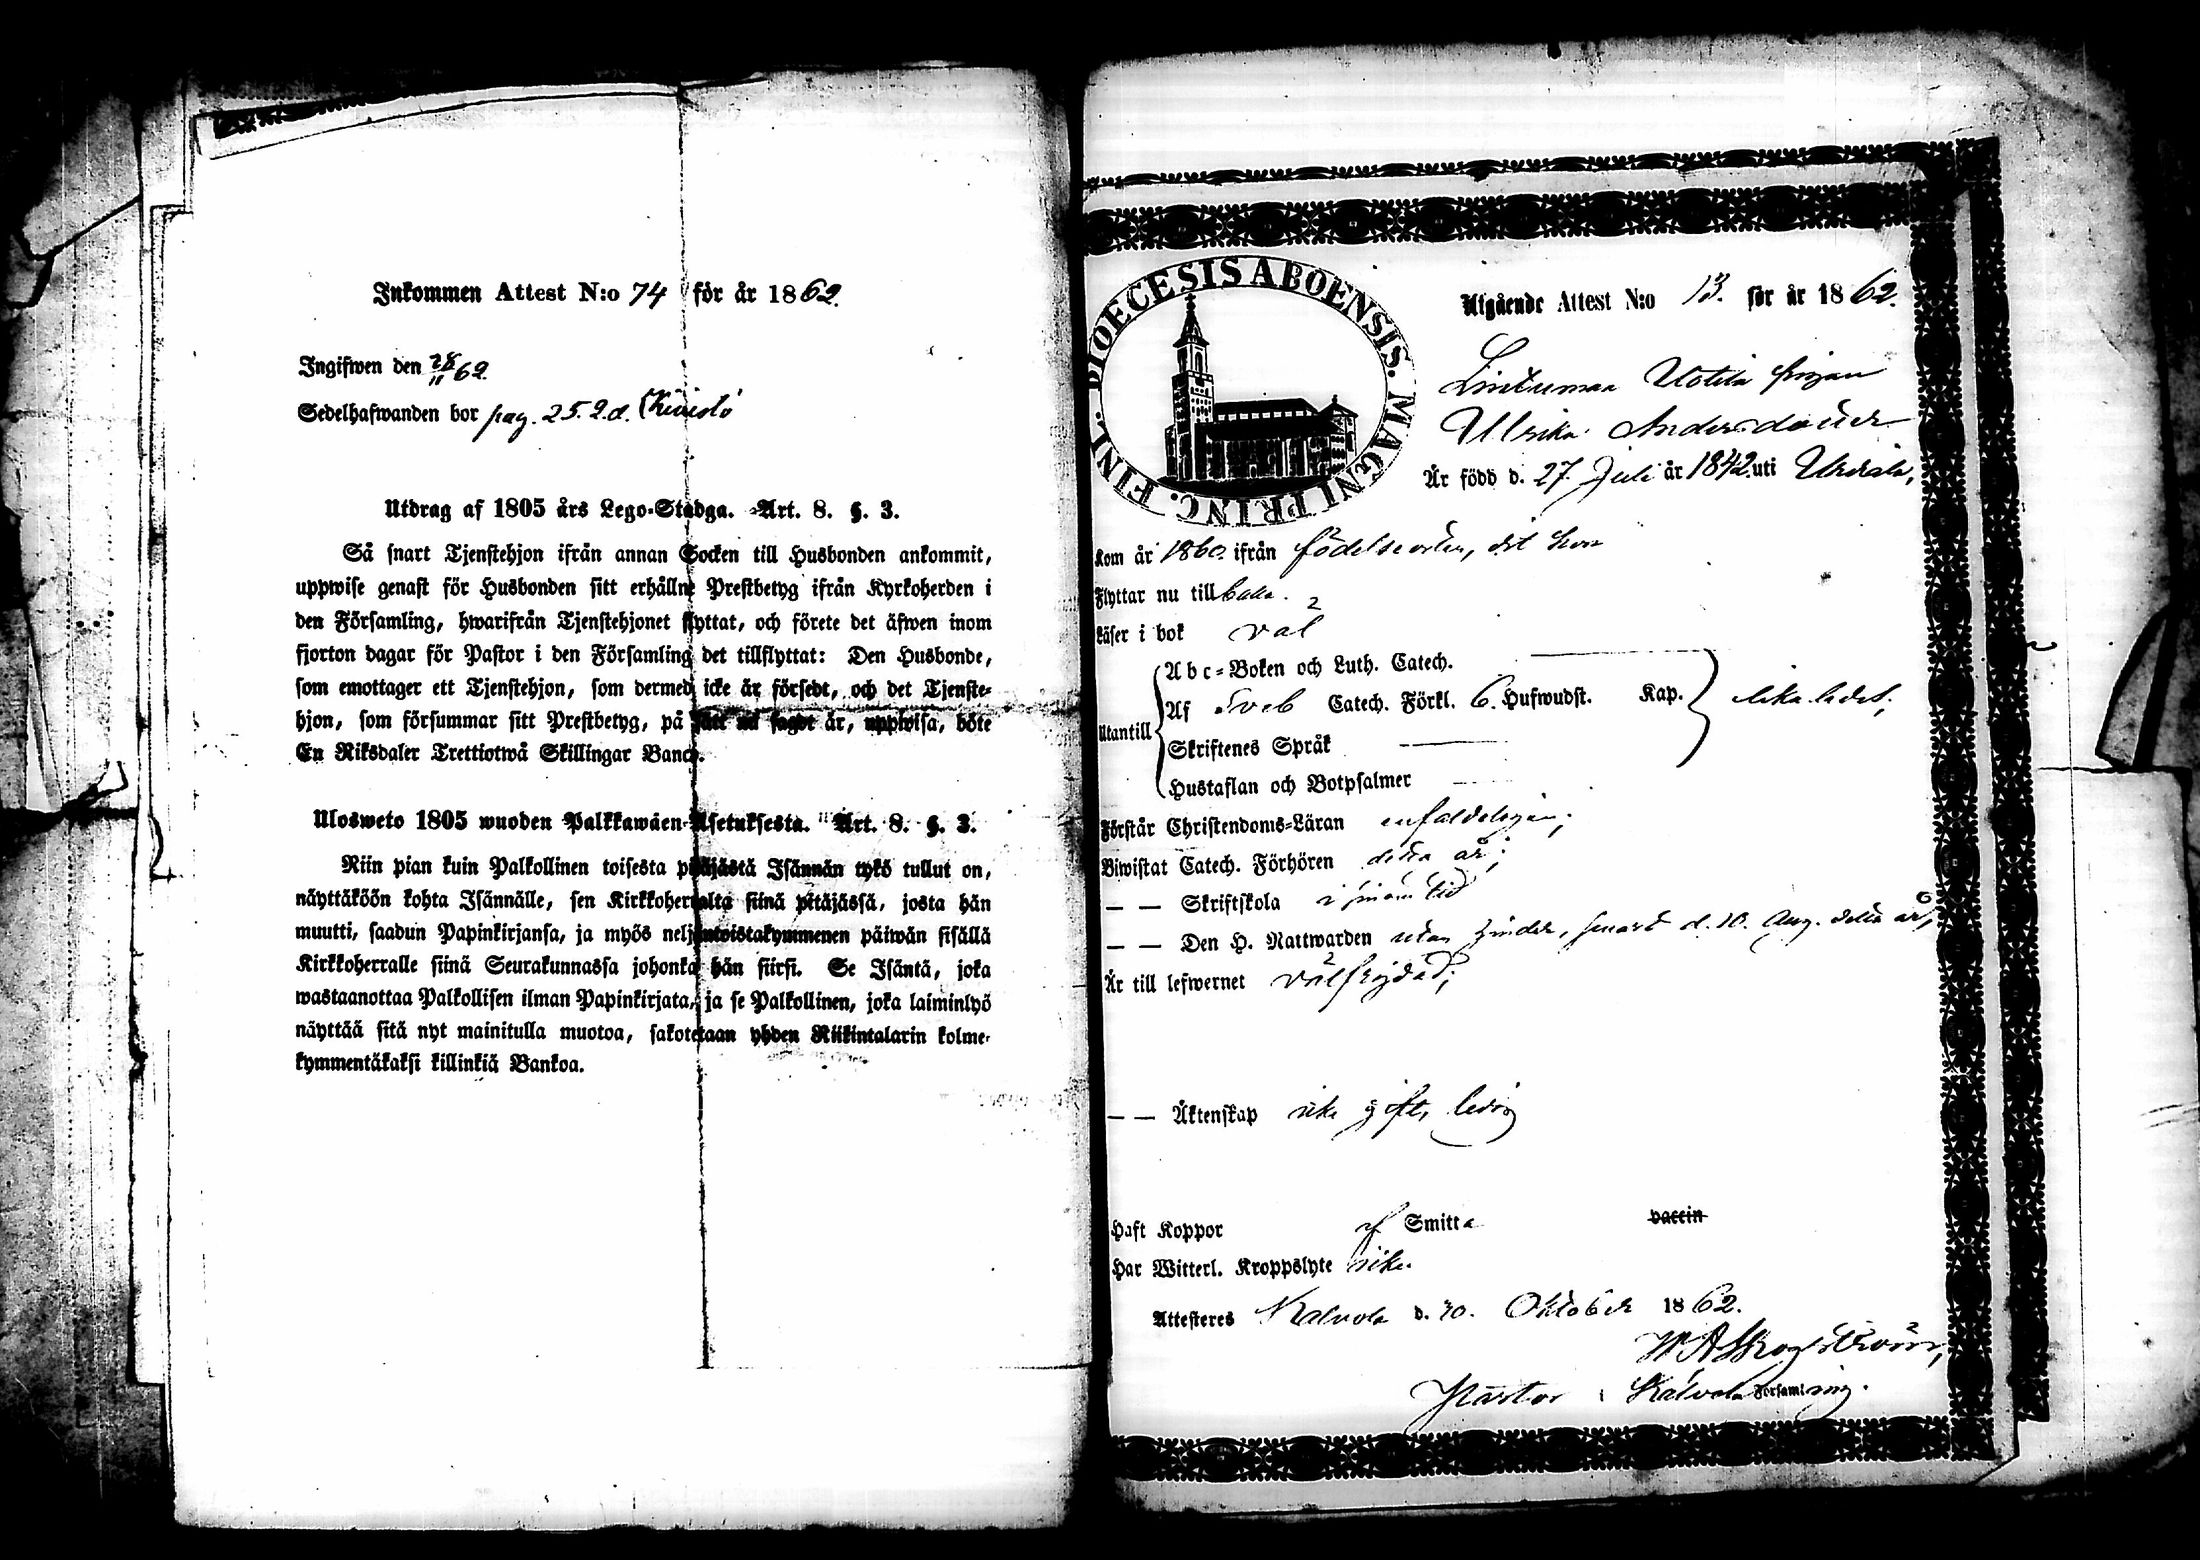 Inkommen Attest N:o 74 för år 1862.
Ingifwen den 28/11 62.
Sedelhafwanden bor pag. 252.d. Kuisto
Utdrag af 1805 års Lego-Stadga. Art. 8. §. 3.
Så snart Tjenstehjon ifrån annan Socken till Husbonden ankommit,
uppwise genast för Husbonden sitt erhållne Prestbetyg ifrån Kyrkoherden i
den Församling, hwarifrån Tjenstehjonet flyttat, och förete det äfwen inom
fjorton dagar för Pastor i den Församling det tillflyttat: Den Husbonde,
som emottager ett Tjenstehjon, som dermed icke är försedt, och det Tjenste-
hjon, som försummar sitt Prestbetyg, på sätt nu sagdt är, uppwisa, böte
En Riksdaler Trettiotwå Skillingar Banco.
Ulosweto 1805 wuoden Palkkawäen-Asetuksesta. Art. 8. §. 3.
Niin pian kuin Palkollinen toisesta pitäjästä Isännän tykö tullut on,
näyttäköön kohta Isännälle, sen Kirkkoherralta siinä pitäjässä, josta hän
muutti, saadun Papinkirjansa, ja myös neljäntoistakymmenen päiwän sisällä
Kirkkoherralle siinä Seurakunnassa johonka hän siirsi. Se Isäntä, joka
wastaanottaa Palkollisen ilman Papinkirjata, ja se Palkollinen, joka laiminlyö
näyttää sitä nyt mainitulla muotoa, sakotetaan yhden Riikintalarin kolme-
kymmentäkaksi killinkiä Bankoa.
DIOECESIS ABOENSIS. MAGNI PRINC. FINL.
Utgående Attest N:o 13. för år 1862.
Lintumaa Uotila pigan
Ulrika Andersdotter
Är född d. 27. Juli år 1842. uti Urdiala,
Kom år 1860. ifrån födelseorten, dit hon
Flyttar nu tillbaka.
Läser i bok väl
Utantill
Abc-Boken och Luth. Catech.
Af Sveb Catech. Förkl. 6. Hufwudst. Kap. lika ledes,
Skriftenes Språk
Hustaflan och Botpsalmer
Förstår Christendoms-Läran enfaldeligen;
Biwistat Catech. Förhören detta år;
— — Skriftskola i sinom tid
— — Den H. Nattwarden utan hinder, senast d. 10. Aug. detta år,
Är till lefwernet välfrejdad;
— — Äktenskap icke gift, ledig
Haft Koppor af Smitta vaccin
Har Witterl. Kroppslyte icke.
Attesteres Kalvola d. 30. Oktober 1862.
W A Skogström,
Pastor i Kalvola Församling.